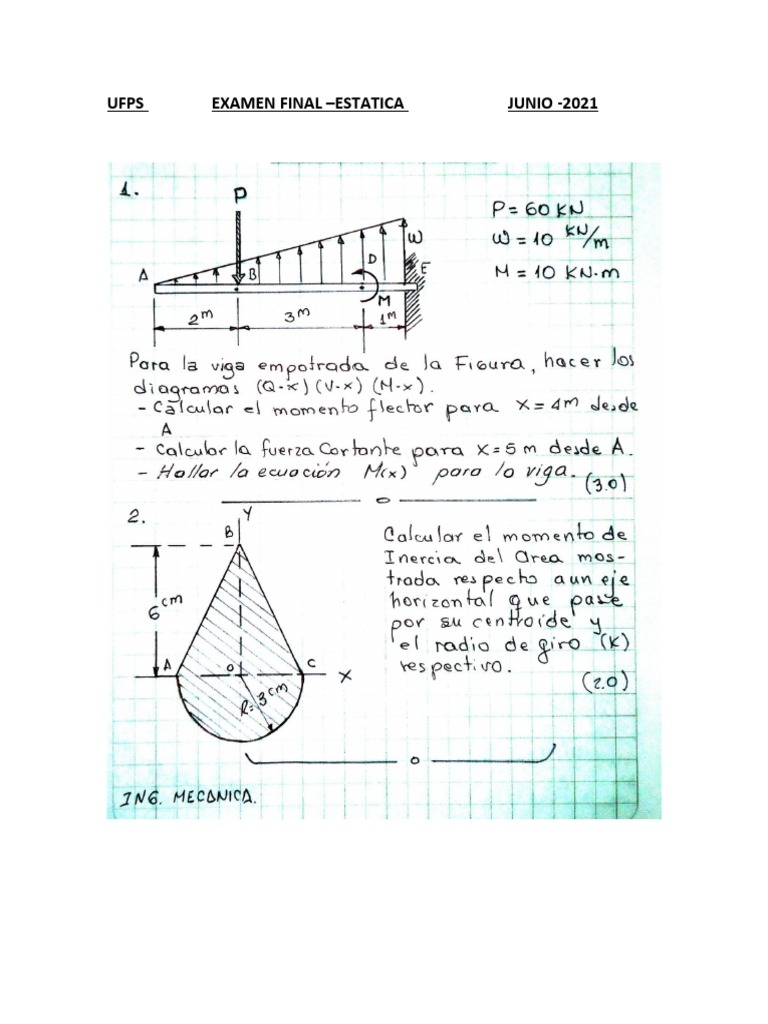 UFPS EXAMEN FINAL –ESTATICA JUNIO -2021
1.
P
P = 60 KN
W = 10 KN/m
M = 10 KN·m
W
A
B
D
E
M
2 m
3 m
1 m
Para la viga empotrada de la Figura, hacer los
diagramas (Q-x) (V-x) (M-x).
- Cálcular el momento flector para x = 4m desde
A
- Calcular la fuerza Cortante para x = 5 m desde A.
- Hallar la ecuación M(x) para la viga. (3.0)
o
2.
Y
B
6 cm
A
O
C
X
R=3 cm
Calcular el momento de
Inercia del Area mos-
trada respecto a un eje
horizontal que pase
por su centroide y
el radio de giro (K)
respectivo.
(2.0)
o
ING. MECANICA.